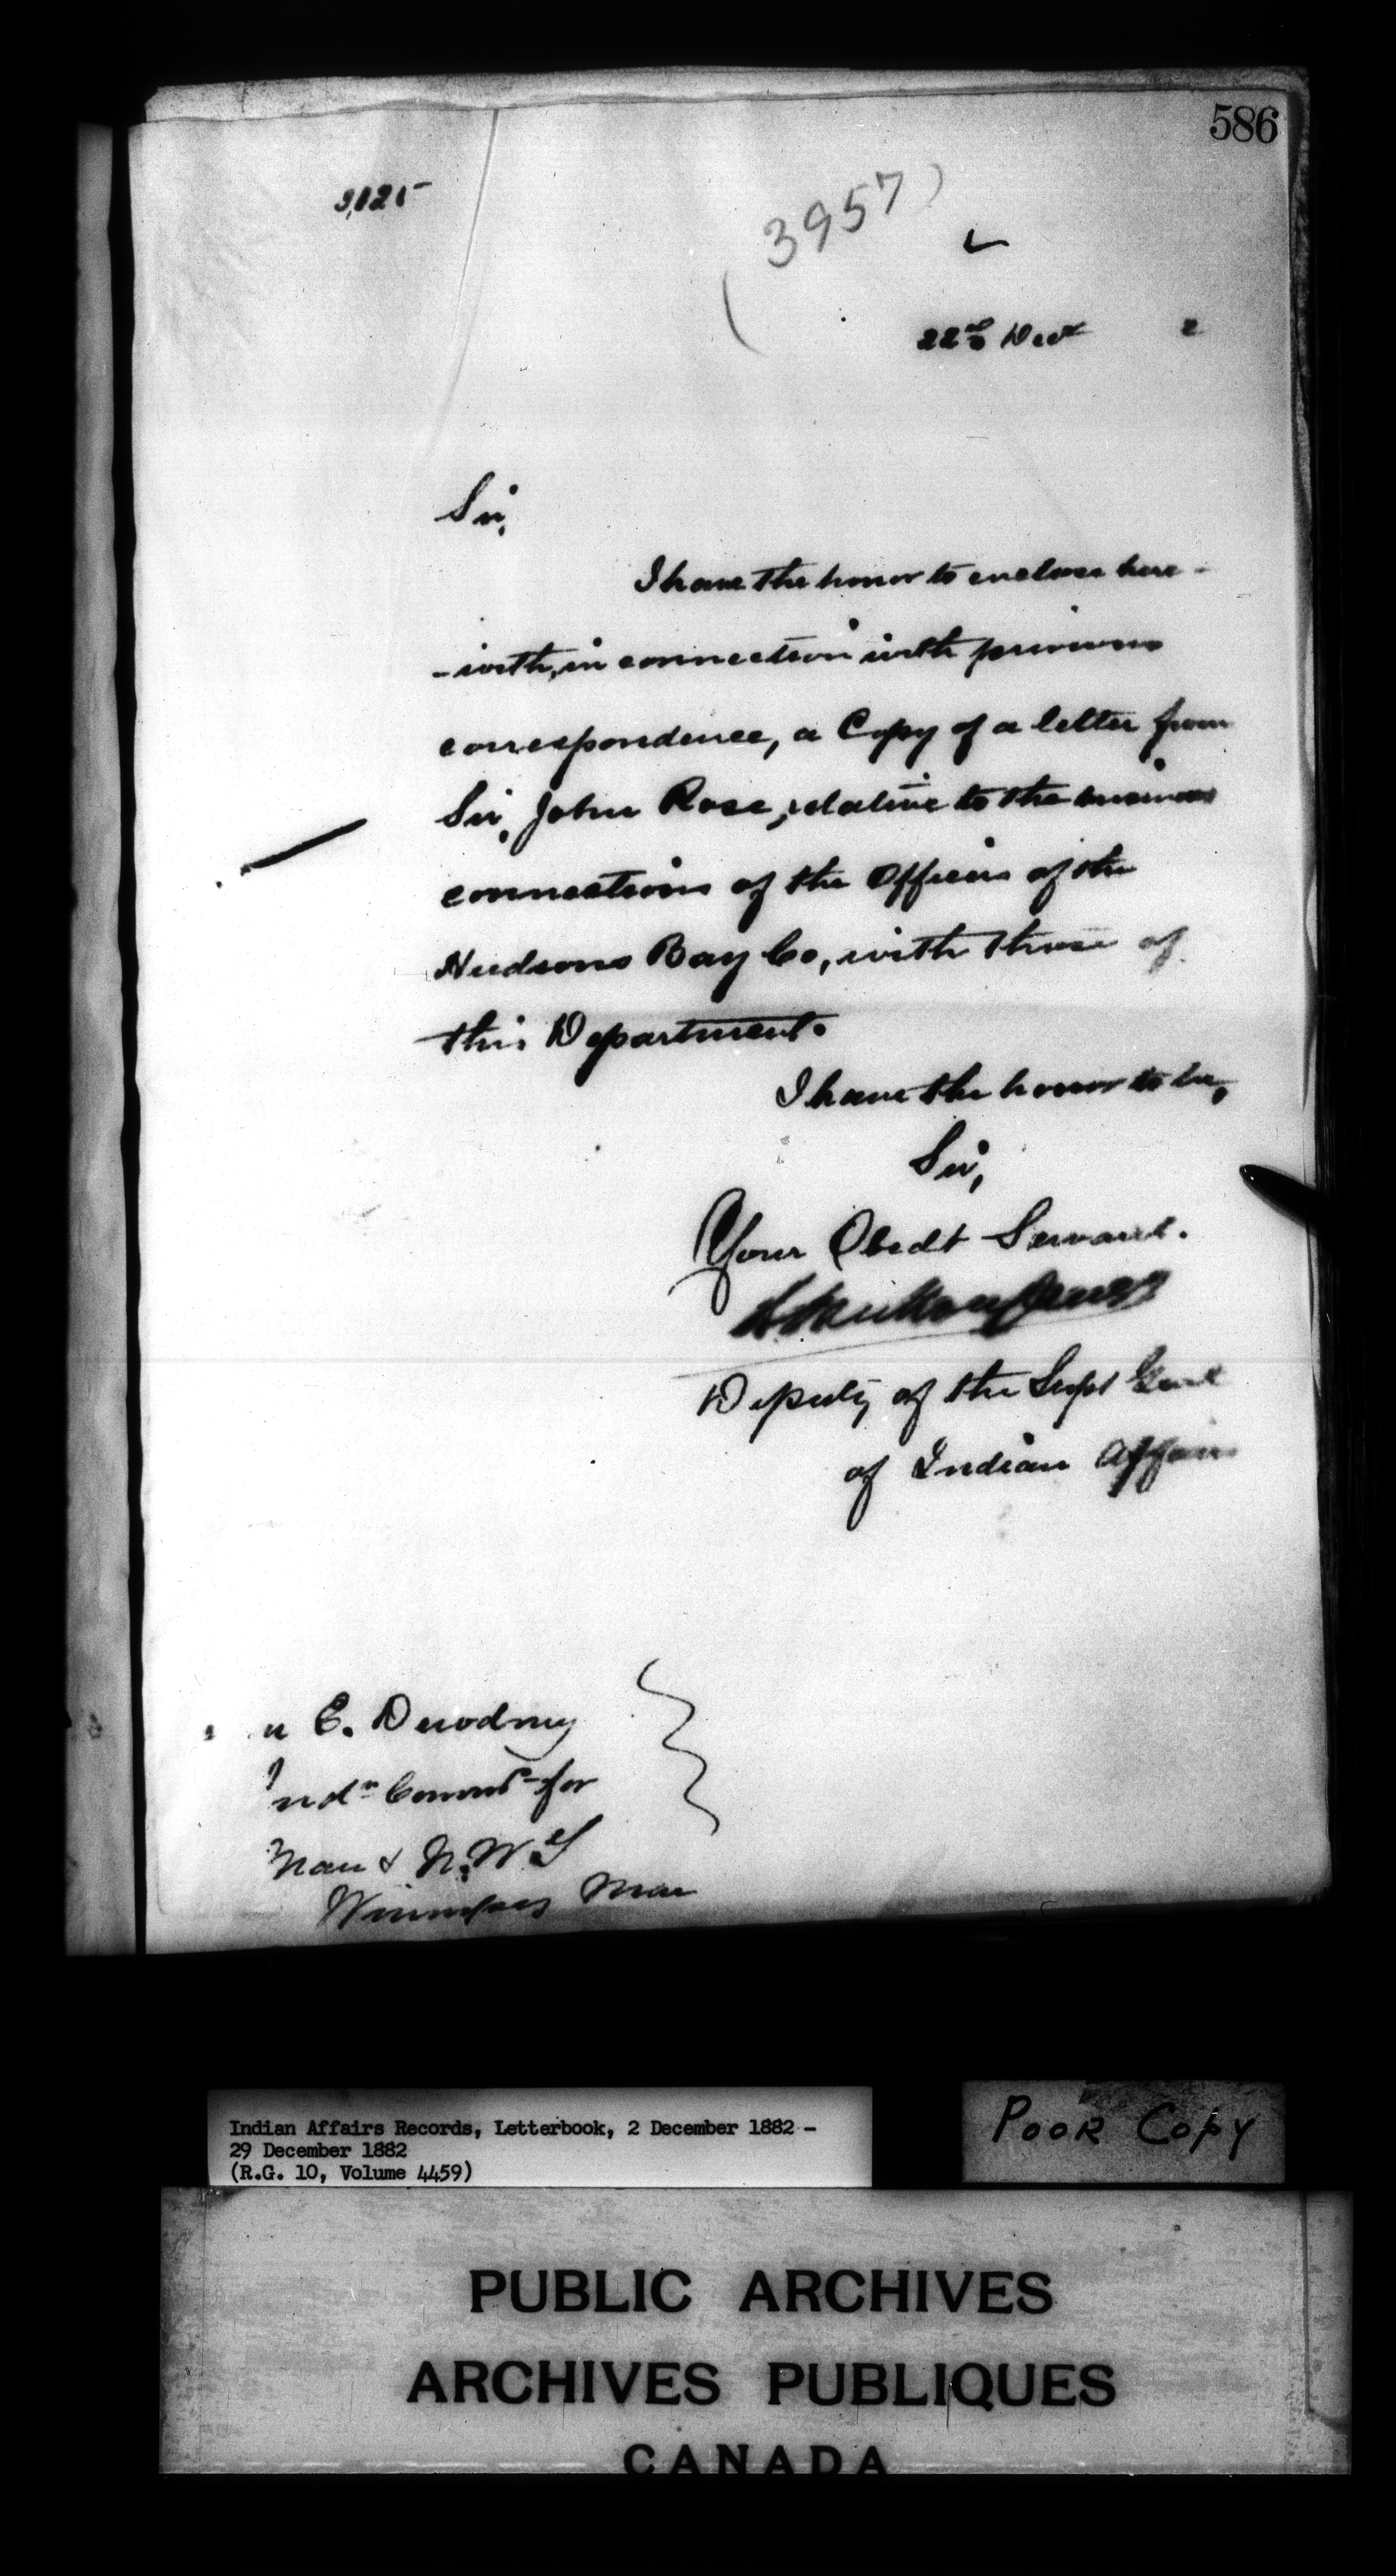 586
(3957)
22nd Decr 2
Sir,
I have the honor to enclose here-
-with, in connection with previous
correspondence, a Copy of a letter from
Sir, John Rose, relative to the business
connections of the Officers of the
Hudsons Bay Co, with those of
this Department.
I have the honor to be,
Sir,
Your Obedt Servant.
Deputy of the Supt Genl
of Indian Affairs
E. Dewdney
Indn Commr for
Man & N.W.T
Winnipeg Man
Indian Affairs Records, Letterbook, 2 December 1882 -
29 December 1882
(R.G. 10, Volume 4459)
POOR COPY
PUBLIC ARCHIVES
ARCHIVES PUBLIQUES
CANADA